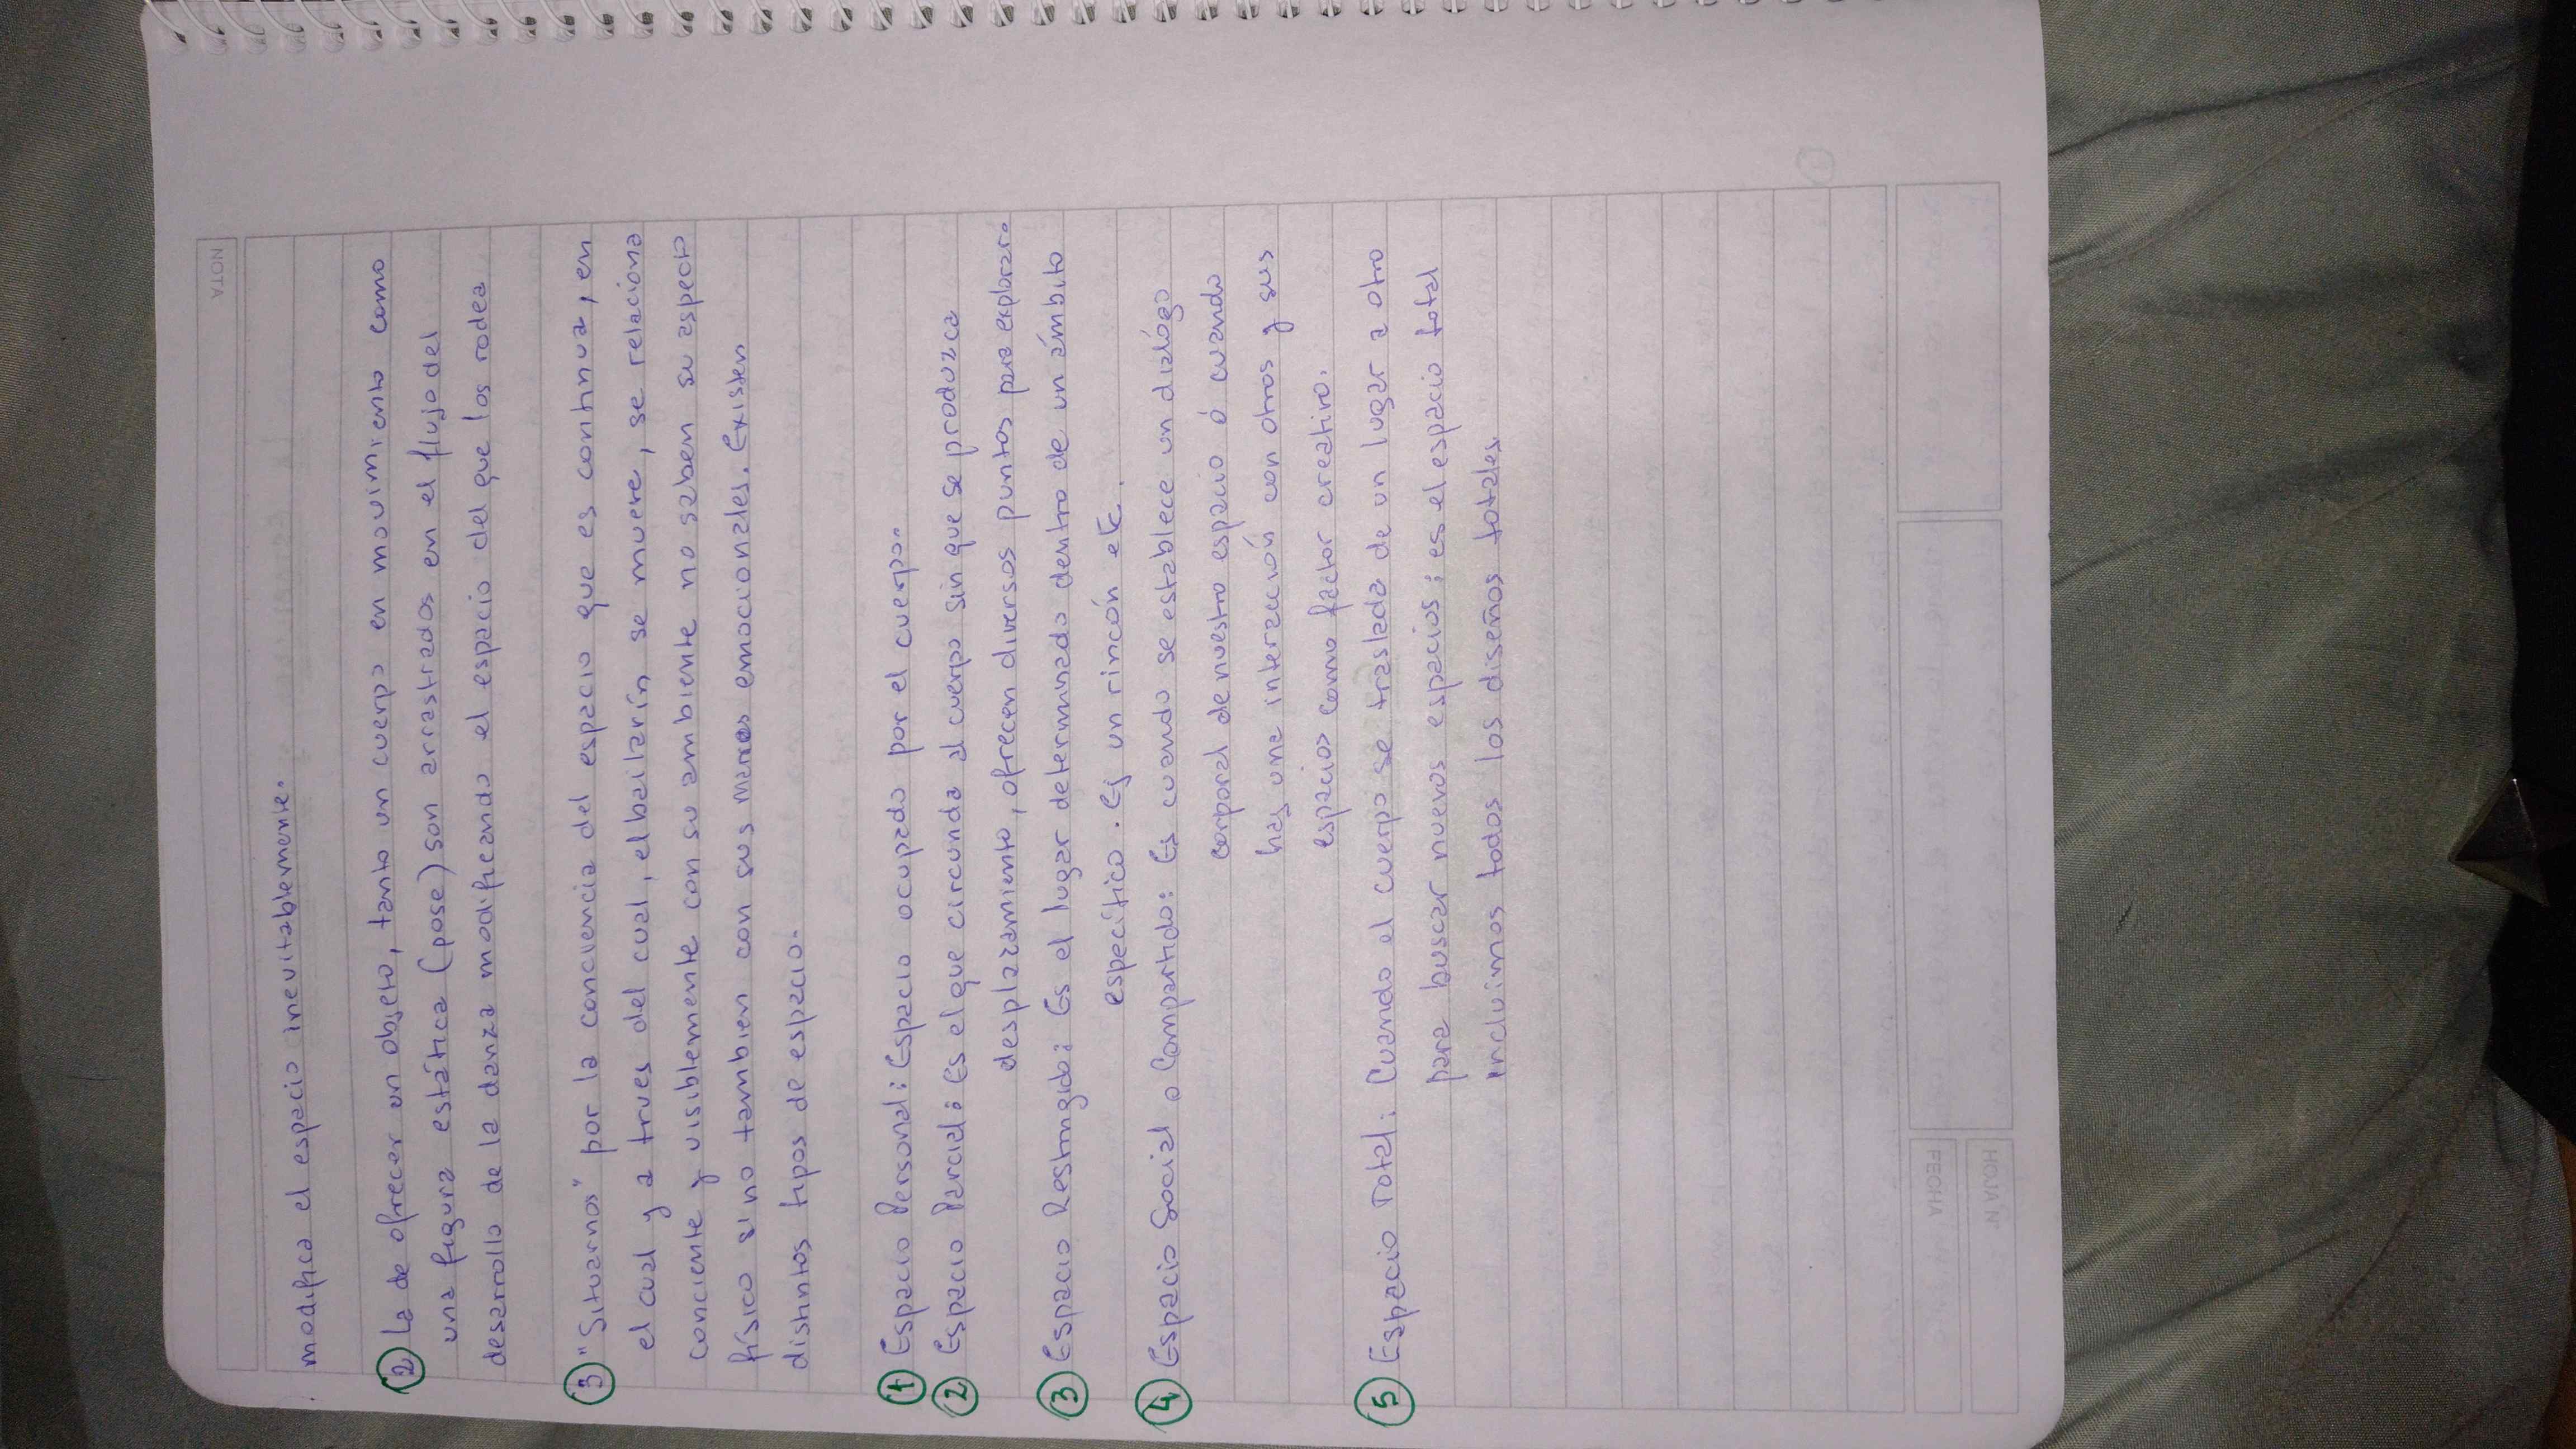 NOTA
modifica el espacio inevitablemente.
② La de ofrecer un objeto, tanto un cuerpo en movimiento como
una figura estática (pose) son arrastrados en el flujo del
desarrollo de la danza modificando el espacio del que los rodea
③ "Situarnos" por la conciencia del espacio que es continua, en
el cual y a trues del cual, el bailarín se mueve, se relaciona
conciente y visiblemente con su ambiente no saben su aspecto
físico sino tambien con sus emocionales. Existen
distintos tipos de espacio.
① Espacio Personal: Espacio ocupado por el cuerpo.
② Espacio Parcial: Es el que circunda al cuerpo sin que se produzca
desplazamiento, ofrecen diversos puntos para explorar.
③ Espacio Restringido: Es el lugar determinado dentro de un ámbito
específico. Ej un rincón etc.
④ Espacio Social o Compartido: Es cuando se establece un dialógo
corporal de nuestro espacio ó cuando
hay una interacción con otros y sus
espacios como factor creativo.
⑤ Espacio Total: Cuando el cuerpo se traslada de un lugar a otro
para buscar nuevos espacios; es el espacio total
incluimos todos los diseños totales.
HOJA N°
FECHA